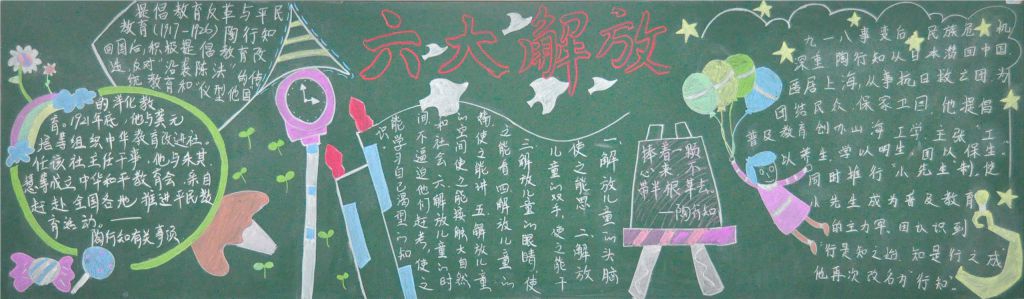 六大解放
提倡教育改革与平民
教育(1917-1926) 陶行知
回国后,积极提倡教育改
进,反对"沿袭陈法"的传
统教育和"仪型他国"
的洋化教
育。1921年底,他与
组织中华教育改进社。
任该社主任干事,他与朱其
慧等成立中华平教育会,亲自
赶赴全国各地,推进平民教
育运动。——
陶行知有关事项
一、解放儿童的头脑
使之能思 二、解放
儿童的双手,使之能干
三、解放儿童的眼睛,使
之能看 四、解放儿童的
嘴,使之能讲 五、解放儿童
的空间,使之能接触大自然
和社会 六、解放儿童的时
间,不逼迫他们赶考,使之
能学习自己渴望的知
识。
捧着一颗
心来,不
带半根草去
—陶行知
九一八事变后,民族危机
深重,陶行知从日本潜回中国
居上海,从事抗日救亡
团结民众,保家卫国,他提倡
普及教育创办山海工学,主张"工
以养生,学以明生,团以保生。
同时推行"小先生制",使
小先生成为普及教育
的主力军,因认识到
"行是知之始,知是行之成
他再次改名为"行知"。